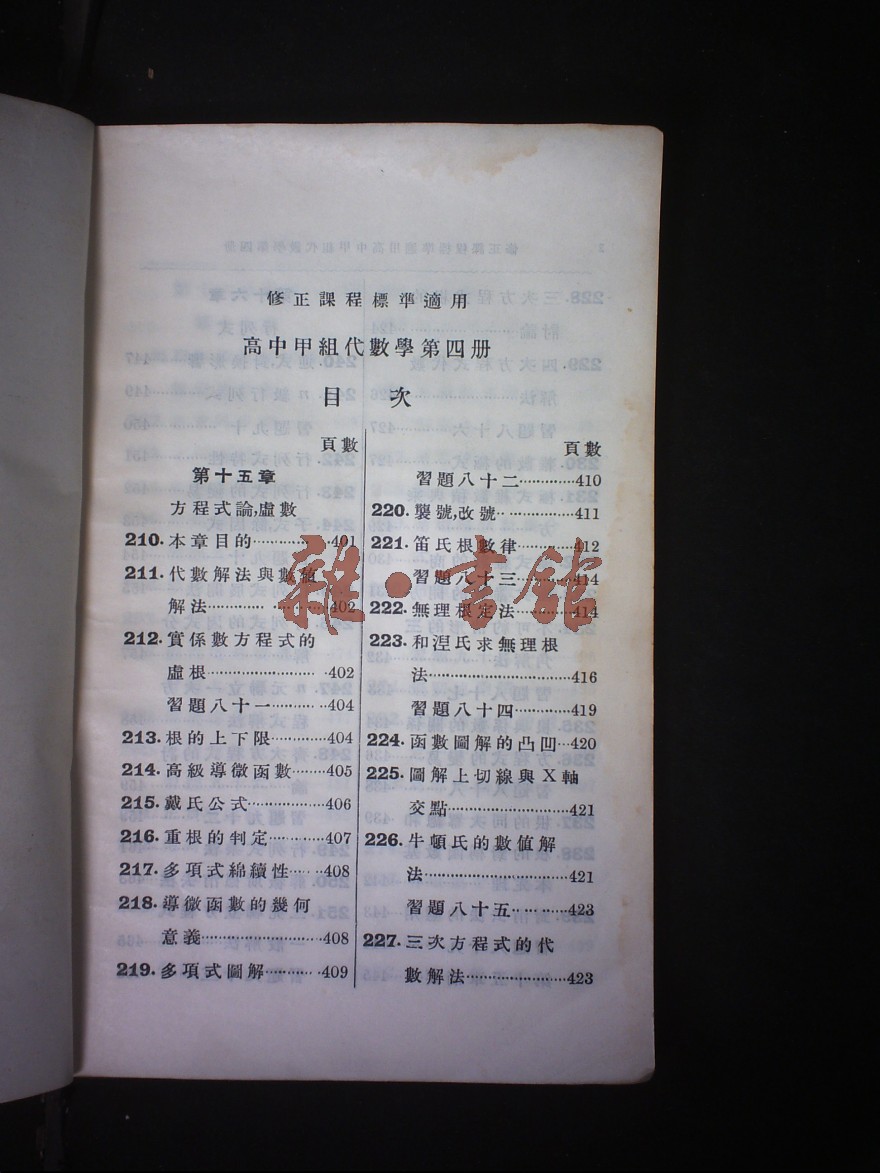 修正課程標準適用
高中甲組代數學第四册
目 次
頁數
第十五章
方程式論,虛數
210. 本章目的…………401
211. 代數解法與數值
解法…………402
212. 實係數方程式的
虛根…………402
習題八十一………404
213. 根的上下限………404
214. 高級導微函數……405
215. 戴氏公式…………406
216. 重根的判定………407
217. 多項式綿續性……408
218. 導微函數的幾何
意義…………408
219. 多項式圖解………409
頁數
習題八十二…………410
220. 襲號,改號…………411
221. 笛氏根數律………412
習題八十三………414
222. 無理根定法………414
223. 和涅氏求無理根
法…………416
習題八十四………419
224. 函數圖解的凸凹…420
225. 圖解上切線與X軸
交點…………421
226. 牛頓氏的數值解
法…………421
習題八十五………423
227. 三次方程式的代
數解法…………423
雜·書館